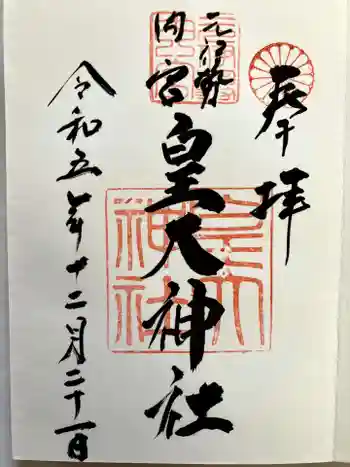 奉拝
元伊勢
内宮
皇大神社
令和五年十二月二十一日
皇大神社